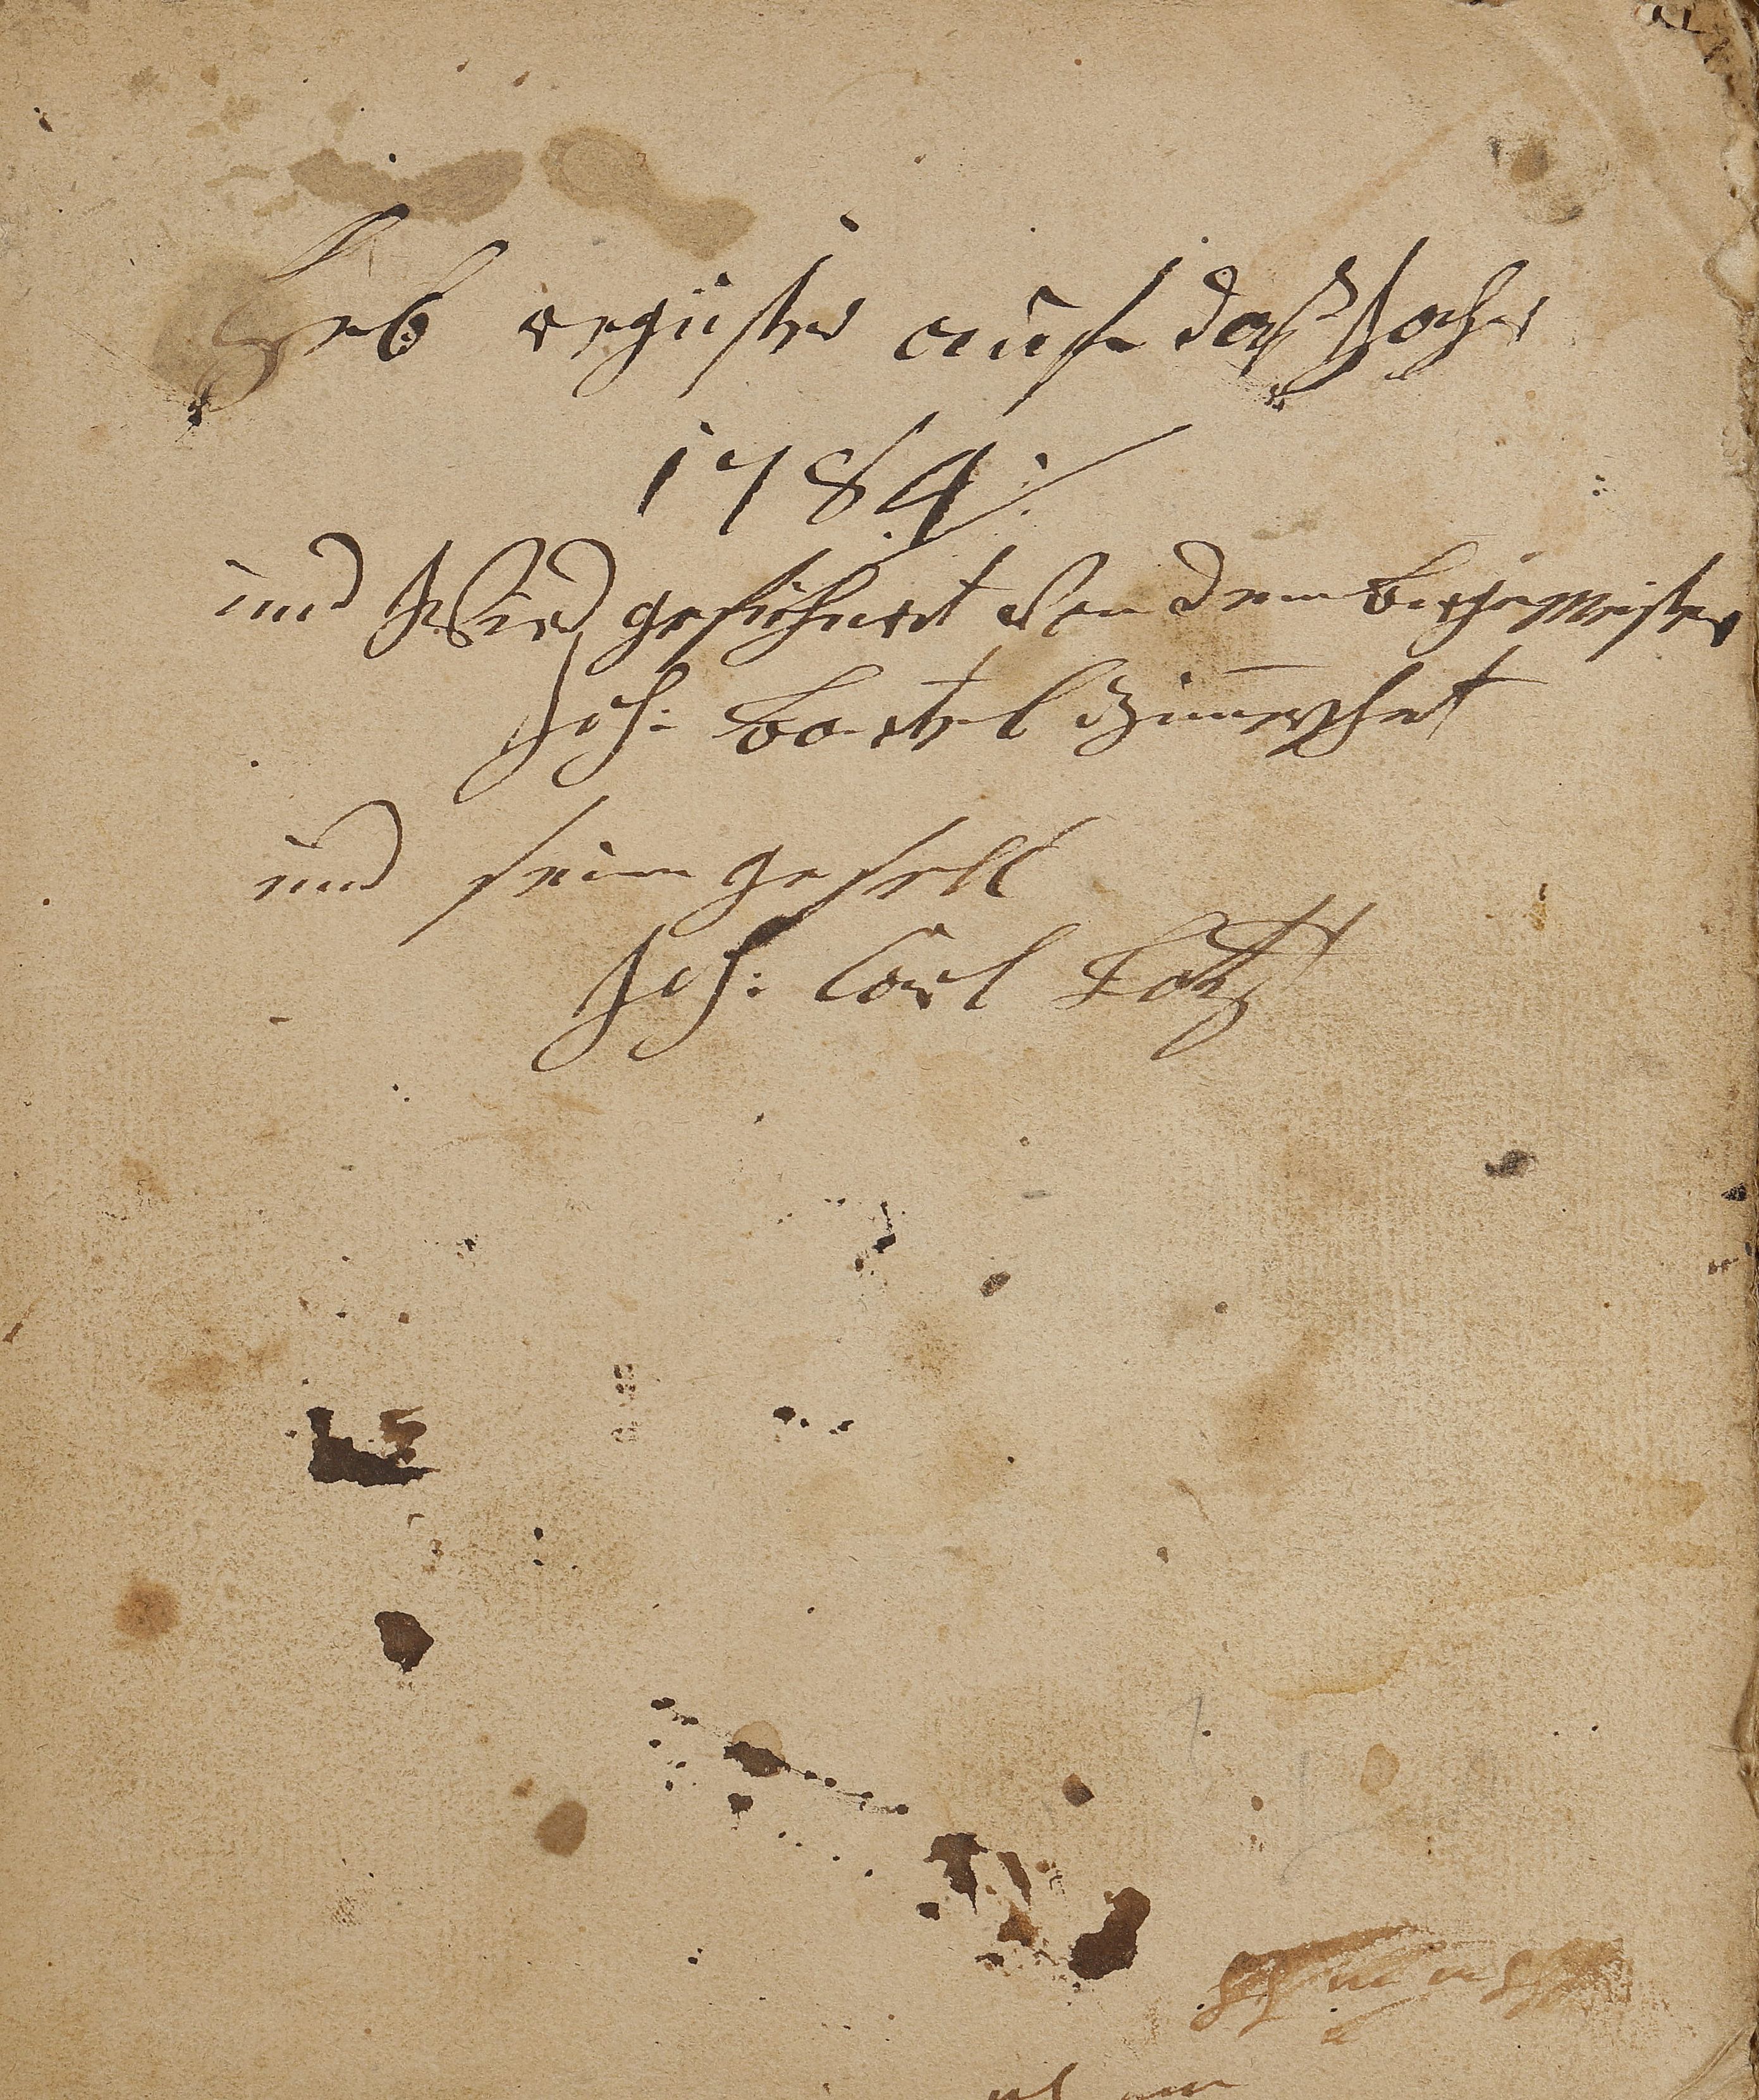 Heb register auf daß Jahr
1784 ·/.
und Wird geführet Von dem bürgemeister
Joh: bartel Zimerschet
und sein gesell
Joh: Carl